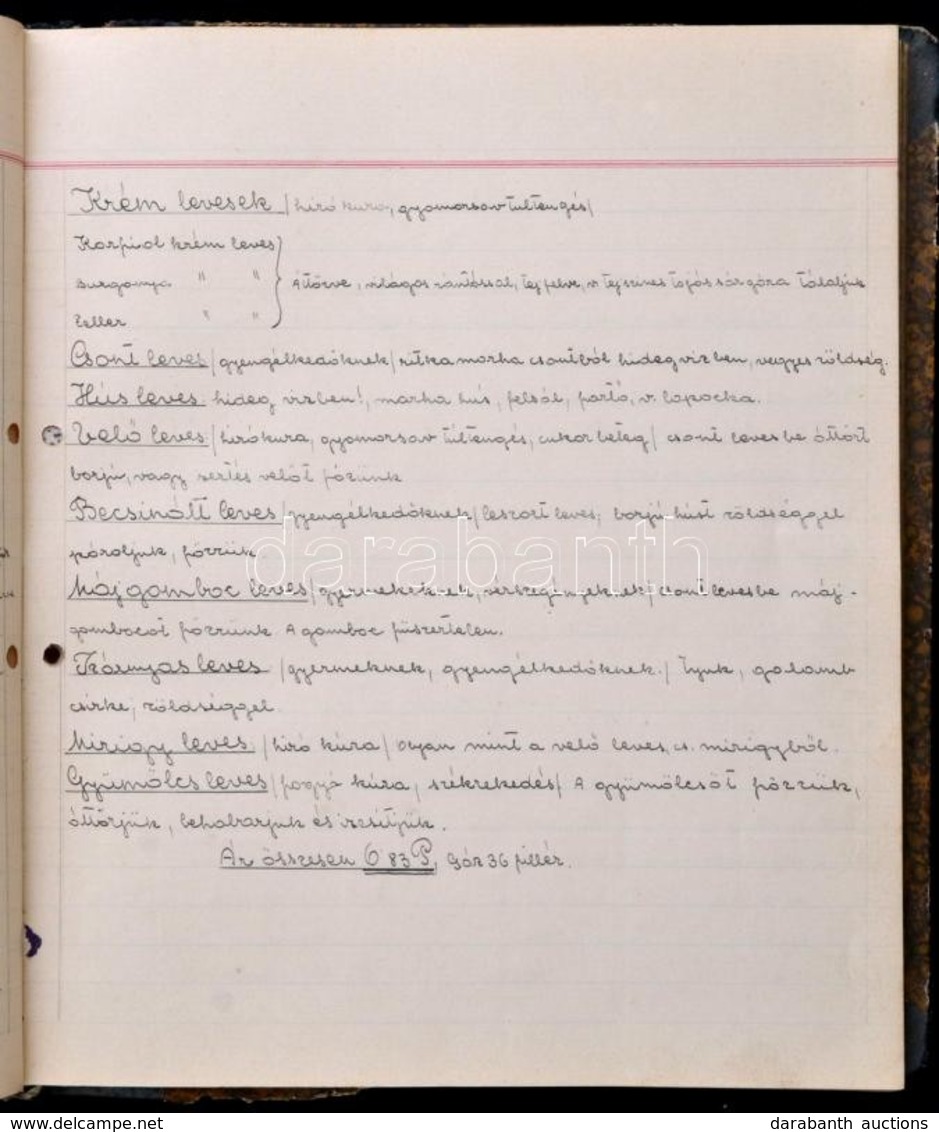 Krém levesek /hízó kura, gyomorsav tultengés/
Karfiol krém leves
Burgonya " "
Zeller " "
Áttörve, világos rántással, tej felve, v. tejszines tojás sárgára tálaljuk
Csont leves /gyengélkedőknek/ ritka marha csontból hideg viz ben, vegyes zöldség.
Hús leves hideg vizben!, marha hús, felsál, partó, v. lapocka.
Velő leves /hízókura, gyomorsav túltengés, cukor beteg/ csont levesbe áttört
borjú, vagy sertés velőt főzünk
Becsinált leves /gyengélkedőknek/ leszort leves, borjú húst zöldséggel
pároljuk, főzzük
darabanth
Májgomboc leves /gyermekeknek, vérszegényeknek/ csont levesbe máj-
gombocot főzzünk. A gomboc füszertelen.
Szárnyas leves /gyermeknek, gyengélkedőknek./ tyuk, galamb
csirke, zöldséggel
Mirigy leves /hízó kúra/ Olyan mint a velő leves, cs. mirigyből.
Gyümölcs leves /fogyó kúra, székrekedés/ A gyümölcsöt főzzük,
áttörjük, behabarjuk és izesitjük.
Ár összesen 0 83 P, Gáz 36 fillér.
www.delcampe.net
darabanth auctions